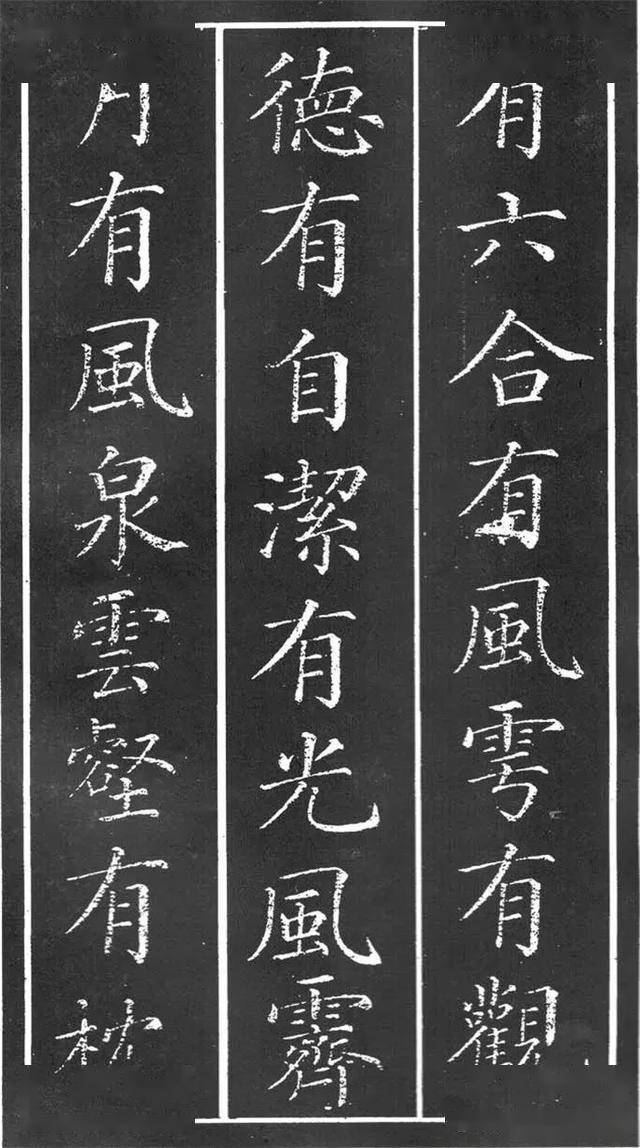 有六合有風雩有觀
德有自潔有光風霽
月有風泉雲壑有枕